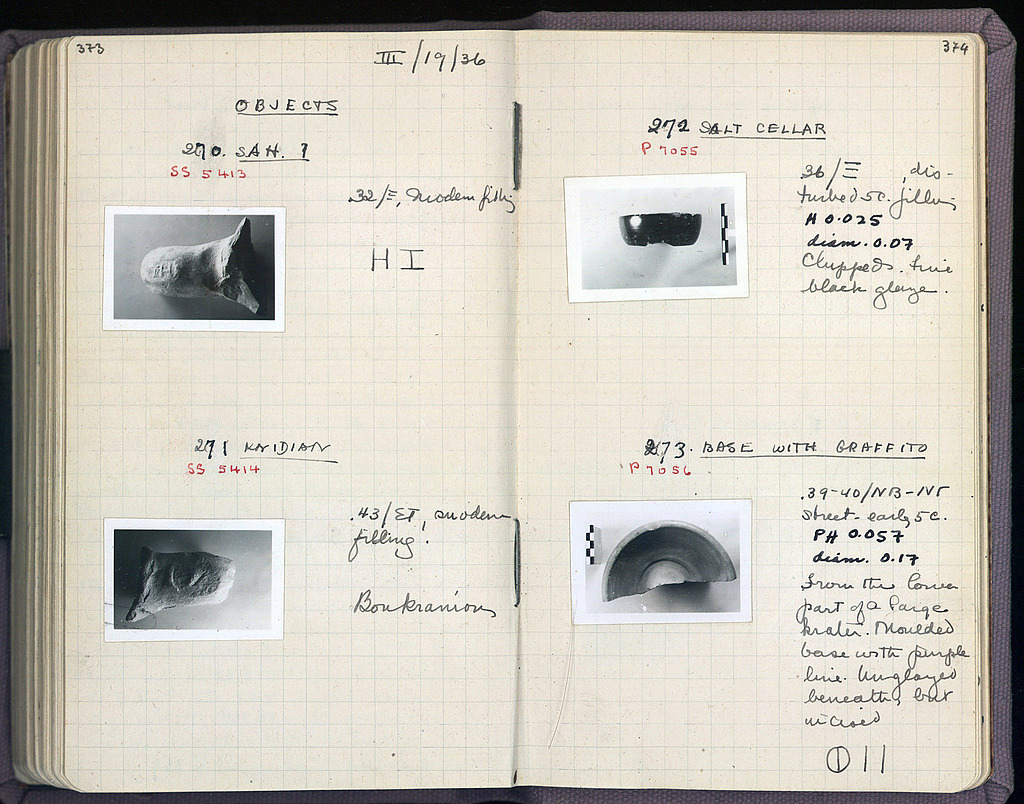 373
III/19/36
OBJECTS
270. SAH. ?
SS 5413
.32/Ξ, modern filling
HI
271 KNIDIAN
SS 5414
.43/ΣΤ, modern
filling.
Boukranion
374
272 SALT CELLAR
P 7055
36/Ξ , dis-
turbed 5c. filling
H 0.025
diam. 0.07
Chipped. Fine
black glaze.
273. BASE WITH GRAFFITO
P 7056
.39-40/
street - early 5c.
PH 0.057
diam. 0.17
From the lower
part of a large
krater. Moulded
base with purple
line. Unglazed
beneath, but
incised